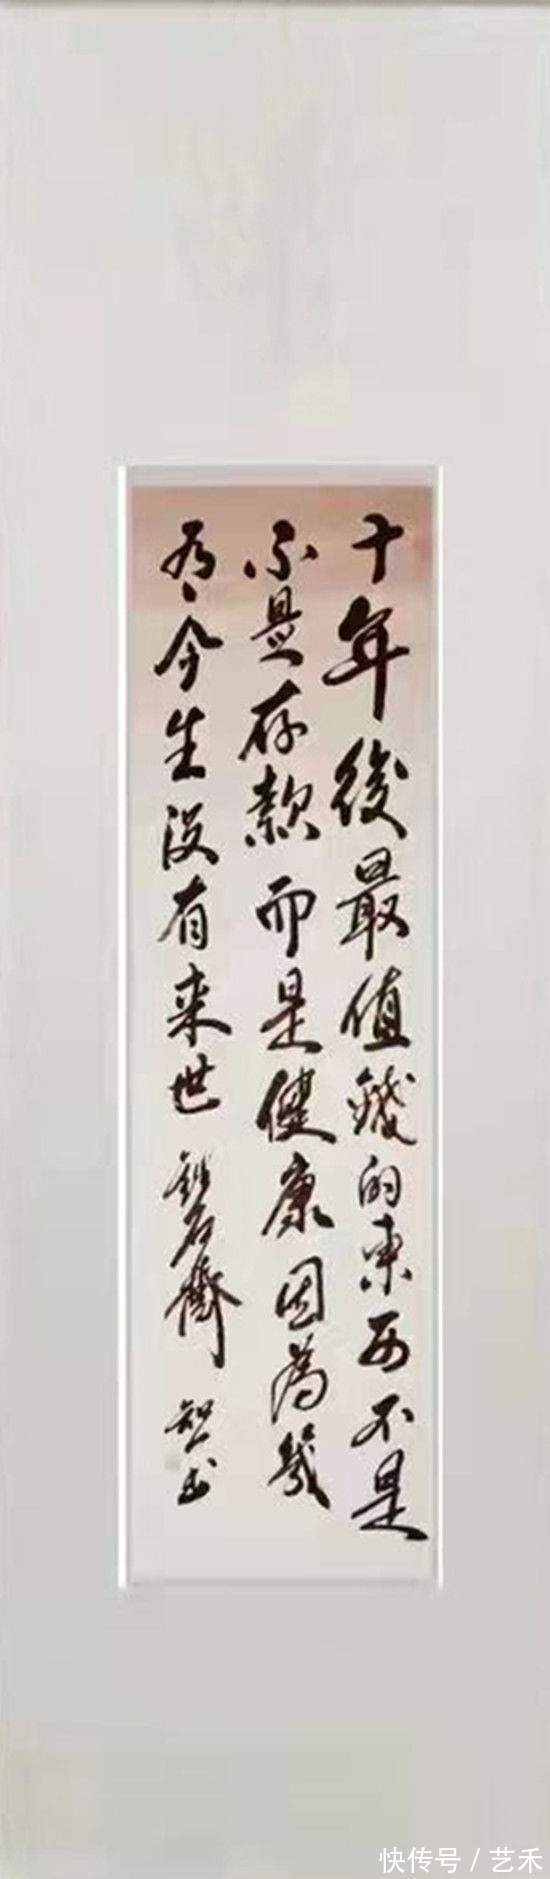 十年後最值錢的東西不是
不是存款而是健康因為
今生没有来世
石齋
快传号 / 艺禾